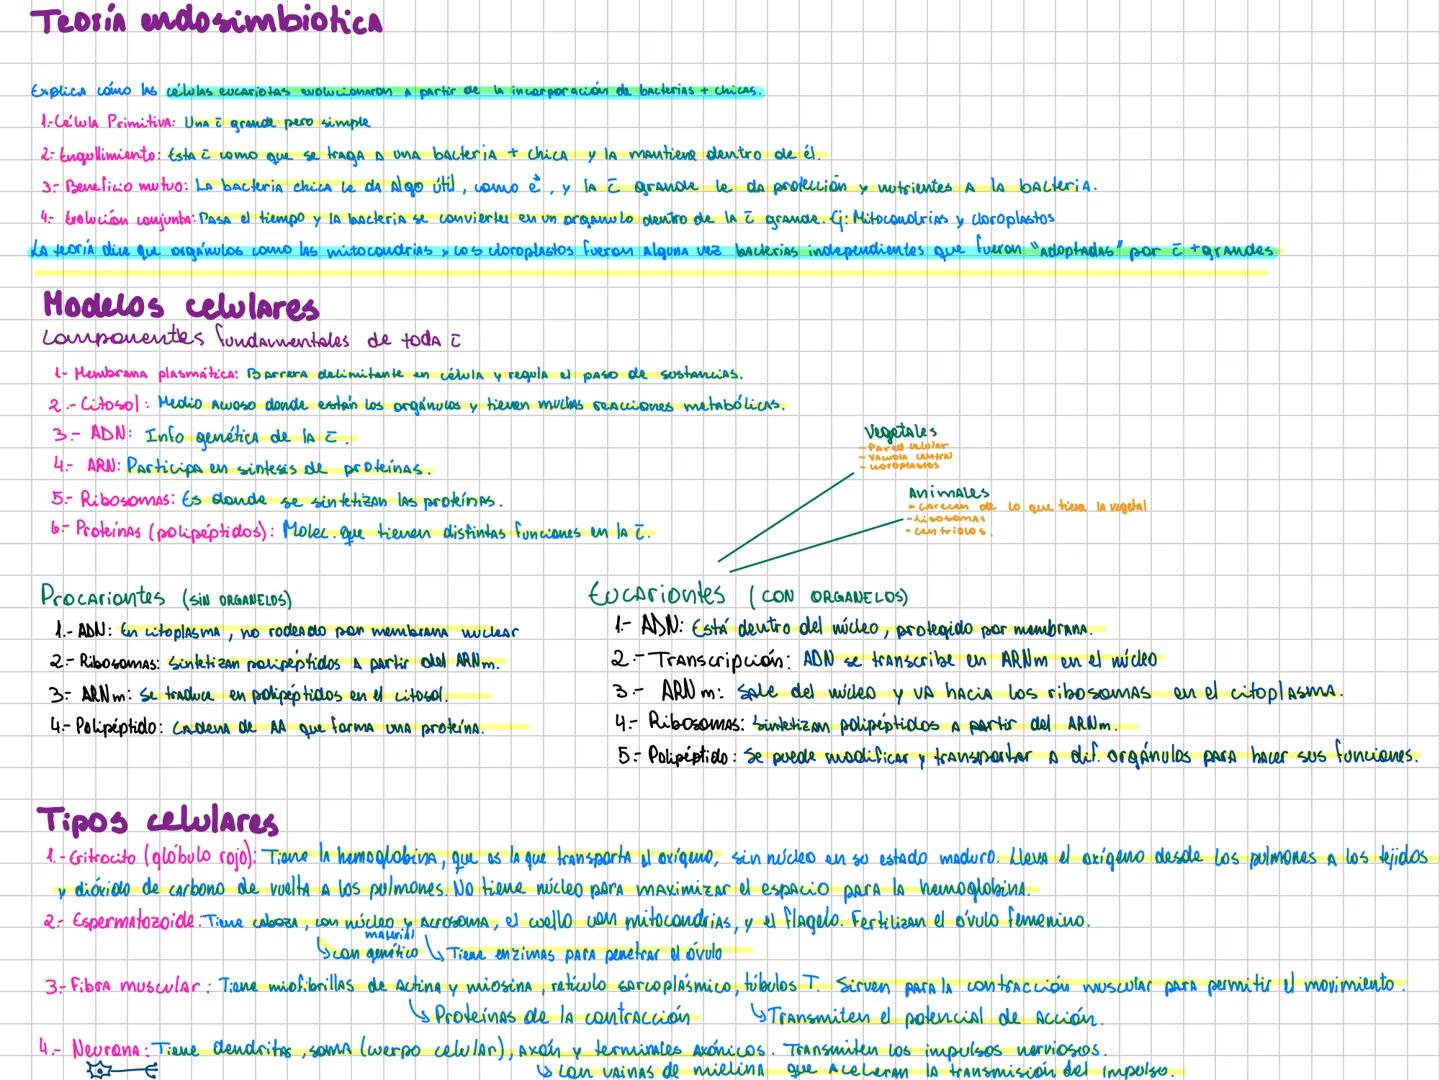 Teoría endosimbiótica
Explica cómo las células eucariotas evolucionaron a partir de la incorporación de bacterias + chicas.
1.- Célula Primitiva: Una c̄ grande pero simple
2.- Engullimiento: Esta c̄ como que se traga a una bacteria + chica y la mantiene dentro de él.
3.- Beneficio mutuo: La bacteria chica le da algo útil, como e⁻, y la c̄ grande le da protección y nutrientes a la bacteria.
4.- Evolución conjunta: Pasa el tiempo y la bacteria se convierte en un orgánulo dentro de la c̄ grande. Ej: Mitocondrias y cloroplastos
La teoría dice que orgánulos como las mitocondrias y los cloroplastos fueron alguna vez bacterias independientes que fueron "adoptadas" por c̄ + grandes
Modelos celulares
Componentes fundamentales de toda c̄
1.- Membrana plasmática: Barrera delimitante en célula y regula el paso de sustancias.
2.- Citosol: Medio acuoso donde están los orgánulos y tienen muchas reacciones metabólicas.
3.- ADN: Info genética de la c̄.
4.- ARN: Participa en síntesis de proteínas.
5.- Ribosomas: Es donde se sintetizan las proteínas.
6.- Proteínas (polipéptidos): Molec. que tienen distintas funciones en la c̄.
Vegetales
- Pared celular
- Vacuola central
- Cloroplastos
Animales
- Carecen de lo que tiene la vegetal
- Lisosomas
- Centriolos.
Procariontes (SIN ORGANELOS)
1.- ADN: En citoplasma, no rodeado por membrana nuclear
2.- Ribosomas: Sintetizan polipéptidos a partir del ARNm.
3.- ARNm: Se traduce en polipéptidos en el citosol.
4.- Polipéptido: Cadena de AA que forma una proteína.
Eucariontes (CON ORGANELOS)
1.- ADN: Está dentro del núcleo, protegido por membrana.
2.- Transcripción: ADN se transcribe en ARNm en el núcleo
3.- ARNm: Sale del núcleo y va hacia los ribosomas en el citoplasma.
4.- Ribosomas: Sintetizan polipéptidos a partir del ARNm.
5.- Polipéptido: Se puede modificar y transportar a dif. orgánulos para hacer sus funciones.
Tipos celulares
1.- Eritrocito (glóbulo rojo): Tiene la hemoglobina, que es la que transporta el oxígeno, sin núcleo en su estado maduro. Lleva el oxígeno desde los pulmones a los tejidos
y dióxido de carbono de vuelta a los pulmones. No tiene núcleo para maximizar el espacio para la hemoglobina.
2.- Espermatozoide: Tiene cabeza, con núcleo y acrosoma, el cuello con mitocondrias, y el flagelo. Fertilizan el óvulo femenino.
↳ con material genético ↳ Tiene enzimas para penetrar el óvulo
3.- Fibra muscular: Tiene miofibrillas de actina y miosina, retículo sarcoplásmico, túbulos T. Sirven para la contracción muscular para permitir el movimiento.
↳ Proteínas de la contracción ↳ Transmiten el potencial de acción.
4.- Neurona: Tiene dendritas, soma (cuerpo celular), axón y terminales axónicos. Transmiten los impulsos nerviosos.
↳ con vainas de mielina que aceleran la transmisión del impulso.